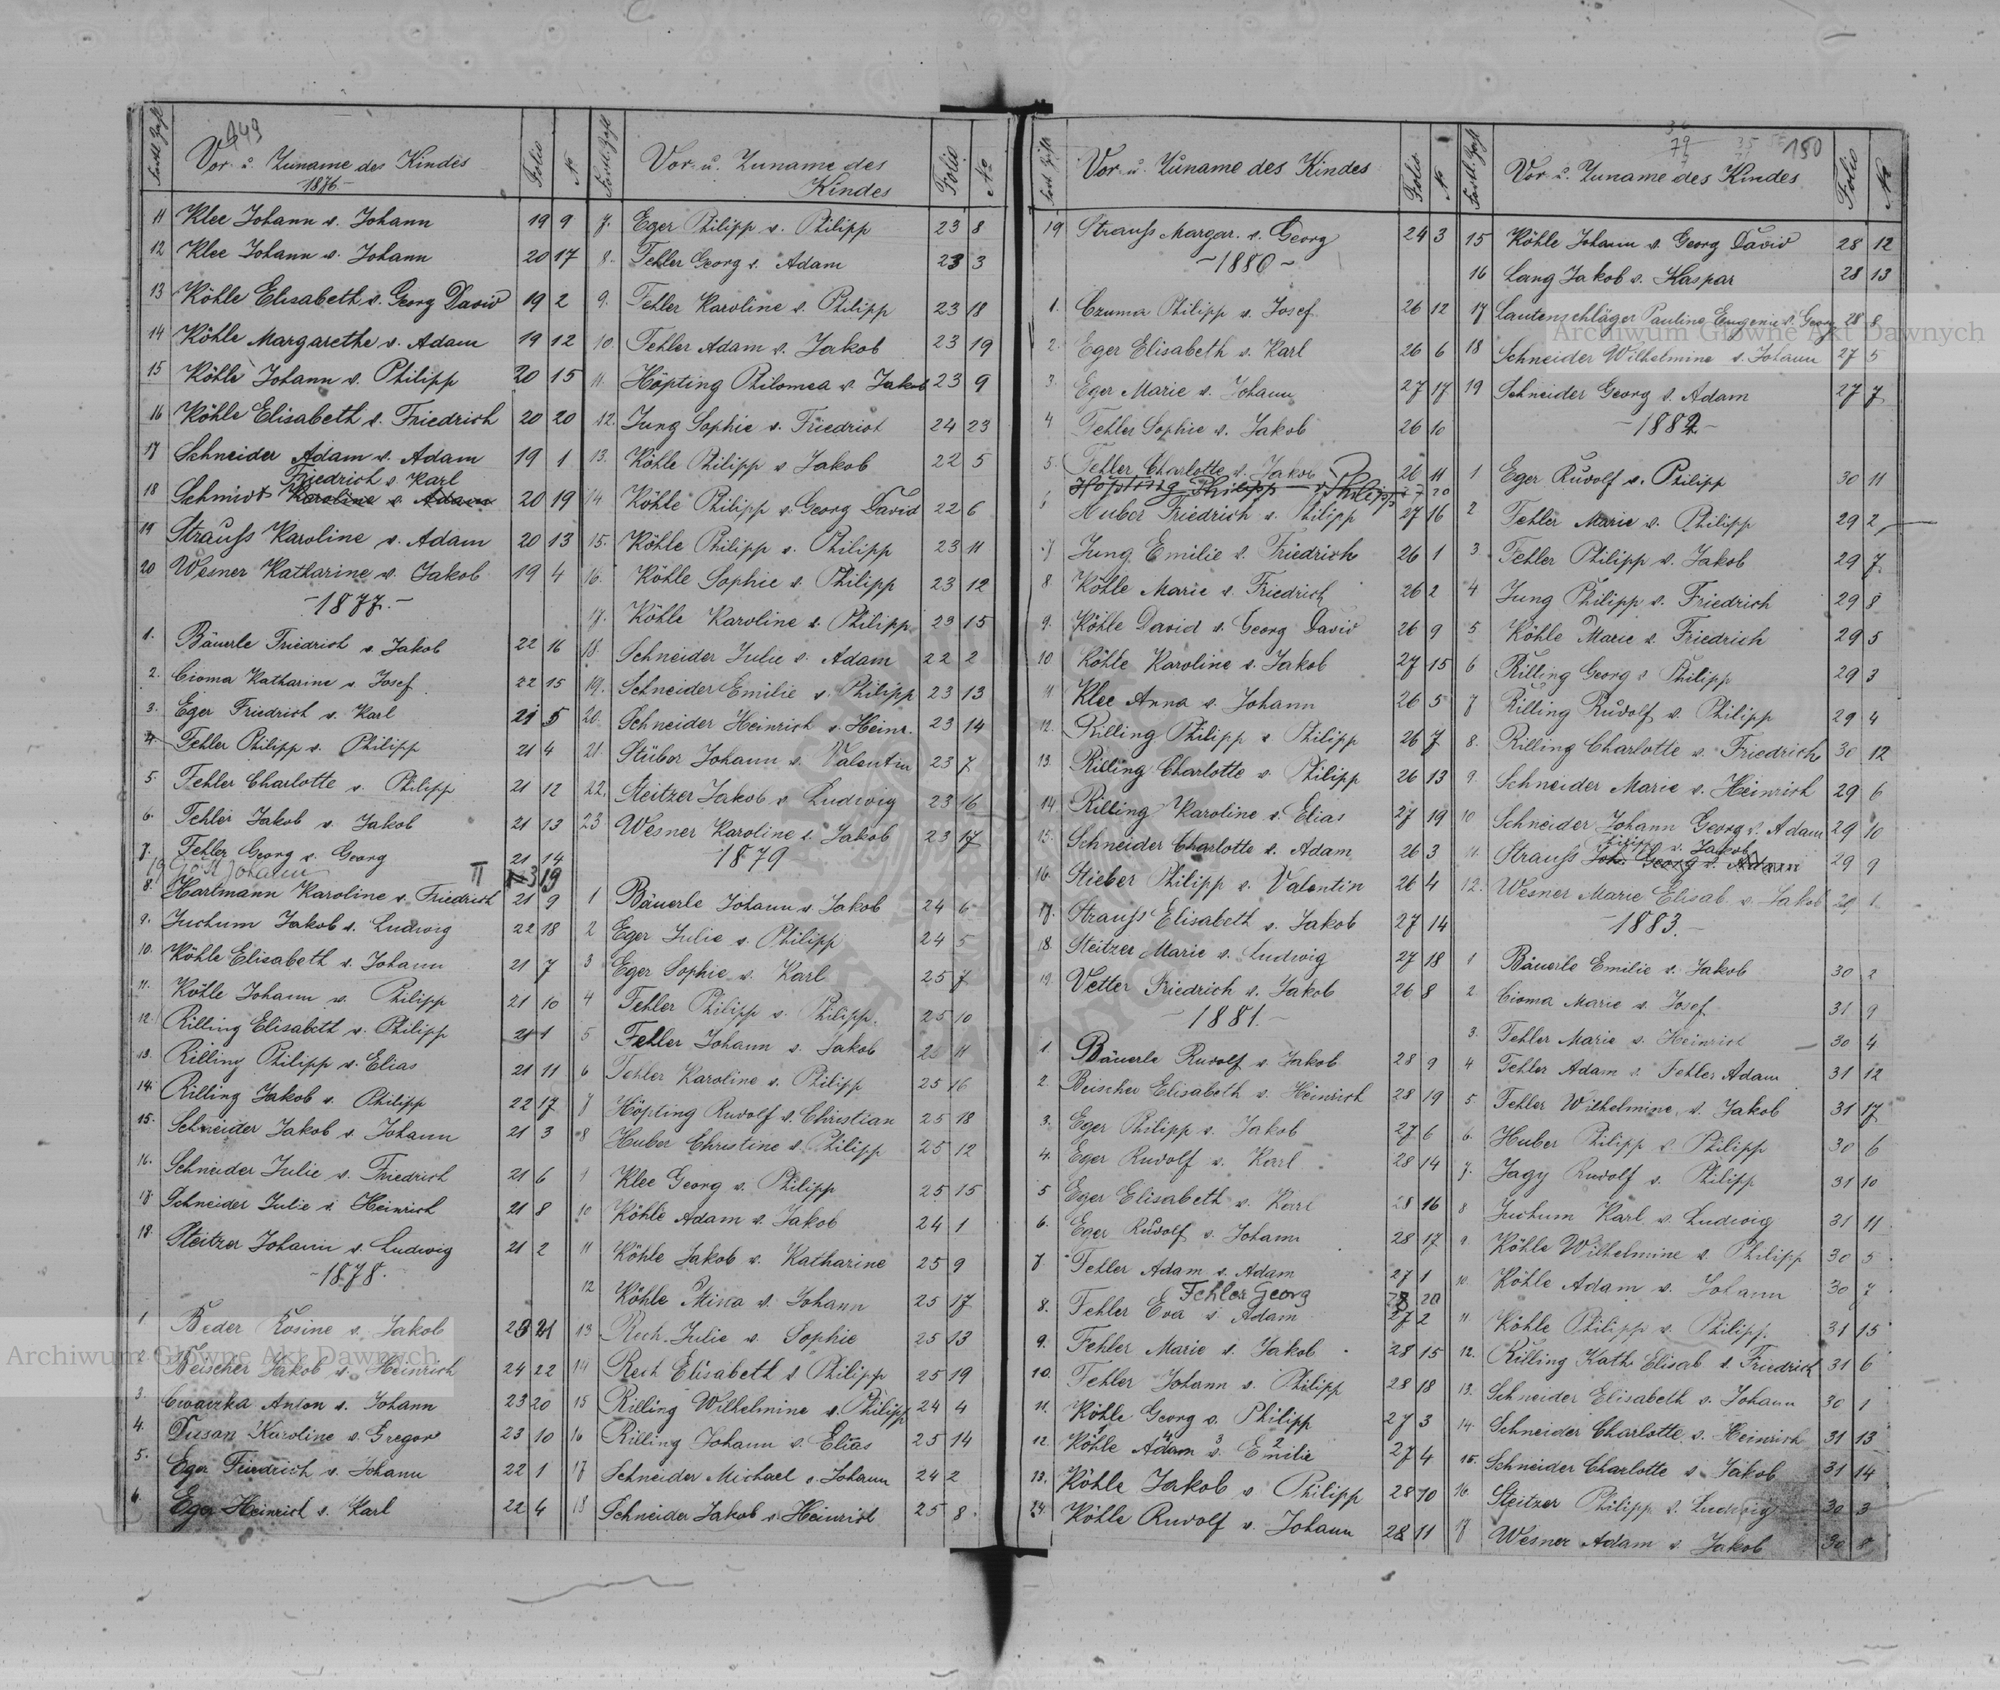 149
Fortl. Zahl Vor- u. Zuname des Kindes Folio №
1876.-
11 Klee Johann v. Johann 19 9
12 Klee Johann v. Johann 20 17
13 Köhle Elisabeth v. Georg David 19 2
14 Köhle Margarethe v. Adam 19 12
15 Köhle Johann v. Philipp 20 15
16 Köhle Elisabeth v. Friedrich 20 20
17 Schneider Adam v. Adam 19 1
Friedrich v Karl
18 Schmidt Karoline v. Adam 20 19
19 Strauss Karoline v. Adam 20 13
20 Wesner Katharine v. Jakob 19 4
- 1877. -
1. Bäuerle Friedrich v. Jakob 22 16
2. Cioma Katharine v. Josef 22 15
3. Eger Friedrich v. Karl 21 5
4. Fehler Philipp v. Philipp 21 4
5. Fehler Charlotte v. Philipp 21 12
6. Fehler Jakob v. Jakob 21 13
7. Fehler Georg v. Georg 21 14
19 Johann II 19
8. Hartmann Karoline v. Friedrich 21 9
9. Juchum Jakob v. Ludwig 22 18
10. Köhle Elisabeth v. Johann 21 7
11. Köhle Johann v. Philipp 21 10
12. Rilling Elisabeth v. Philipp 21 1
13. Rilling Philipp v. Elias 21 11
14. Rilling Jakob v. Philipp 22 17
15. Schneider Jakob v. Johann 21 3
16. Schneider Julie v. Friedrich 21 6
17. Schneider Julie v. Heinrich 21 8
18. Steitzer Johann v. Ludwig 21 2
- 1878. -
1 Beder Rosine v. Jakob 23 21
2 Beischer Jakob v. Heinrich 24 22
3. Cwaizka Anton v. Johann 23 20
4. Dusan Karoline v. Gregor 23 10
5. Eger Friedrich v. Johann 22 1
6. Eger Heinrich v. Karl 22 4
Fortl. Zahl Vor- u. Zuname des Kindes Folio №
7. Eger Philipp v. Philipp 23 8
8. Fehler Georg v. Adam 23 3
9. Fehler Karoline v. Philipp 23 18
10. Fehler Adam v. Jakob 23 19
11. Höpting Philomea v. Jakob 23 9
12. Jung Sophie v. Friedrich 24 23
13. Köhle Philipp v Jakob 22 5
14 Köhle Philipp v. Georg David 22 6
15. Köhle Philipp v. Philipp 23 11
16. Köhle Sophie v. Philipp 23 12
17. Köhle Karoline v. Philipp 23 15
18. Schneider Julie v. Adam 22 2
19. Schneider Emilie v. Philipp 23 13
20. Schneider Heinrich v. Heinr. 23 14
21. Stüber Johann v. Valentin 23 7
22. Steitzer Jakob v Ludwig 23 16
23 Wesner Karoline v. Jakob 23 17
1879
1 Bäuerle Johann v. Jakob 24 6
2 Eger Julie v. Philipp 24 5
3 Eger Sophie v. Karl 25 7
4 Fehler Philipp v. Philipp. 25 10
5 Fehler Johann v. Jakob 25 11
6 Fehler Karoline v. Philipp 25 16
7 Höpting Rudolf v. Christian 25 18
8 Huber Christine v. Philipp 25 12
9 Klee Georg v. Philipp 25 15
10 Köhle Adam v. Jakob 24 1
11 Köhle Jakob v. Katharine 25 9
12 Köhle Mina v. Johann 25 17
13 Rech Julie v. Sophie 25 13
14 Rech Elisabeth v Philipp 25 19
15 Rilling Wilhelmine v. Philipp 24 4
16 Rilling Johann v. Elias 25 14
17 Schneider Michael v. Johann 24 2
18 Schneider Jakob v. Heinrich 25 8
Fort. Zahl Vor- u. Zuname des Kindes Folio №
19 Strauss Margar. v. Georg 24 3
- 1880 -
1. Czuma Philipp v. Josef 26 12
2. Eger Elisabeth v. Karl 26 6
3. Eger Marie v. Johann 27 17
4 Fehler Sophie v. Jakob 26 10
5. Fehler Charlotte v. Jakob 26 11
Höpting Philipp v. Philipp 27 20
6 Huber Friedrich v. Philipp 27 16
7 Jung Emilie v. Friedrich 26 1
8 Köhle Marie v. Friedrich 26 2
9. Köhle David v. Georg David 26 9
10 Köhle Karoline v. Jakob 27 15
11 Klee Anna v. Johann 26 5
12. Rilling Philipp v Philipp 26 7
13. Rilling Charlotte v. Philipp 26 13
14. Rilling Karoline v. Elias 27 19
15. Schneider Charlotte v. Adam 26 3
16. Stieber Philipp v. Valentin 26 4
17. Strauss Elisabeth v. Jakob 27 14
18. Steitzer Marie v. Ludwig 27 18
19. Vetter Friedrich v. Jakob 26 8
- 1881. -
1. Bäuerle Rudolf v. Jakob 28 9
2. Beischer Elisabeth v. Heinrich 28 19
3. Eger Philipp v. Jakob 27 6
4. Eger Rudolf v. Karl 28 14
5 Eger Elisabeth v. Karl 28 16
6. Eger Rudolf v. Johann 28 17
7. Fehler Adam v. Adam 27 1
Fehler Georg 28 20
8. Fehler Eva v. Adam 27 2
9. Fehler Marie v. Jakob 28 15
10. Fehler Johann v. Philipp 28 18
11. Köhle Georg v. Philipp 27 3
12. Köhle Adam v. Emilie 27 4
13. Köhle Jakob v. Philipp 28 10
14. Köhle Rudolf v. Johann 28 11
79 35 150
Fortl. Zahl Vor- u. Zuname des Kindes Folio №
15 Köhle Johann v. Georg David 28 12
16 Lang Jakob v. Kaspar 28 13
17 Lautenschläger Pauline Eugenie v. Georg 28 8
18 Schneider Wilhelmine v. Johann 27 5
19 Schneider Georg v. Adam 27 7
- 1882 -
1 Eger Rudolf v. Philipp 30 11
2 Fehler Marie v. Philipp 29 2
3. Fehler Philipp v. Jakob 29 7
4 Jung Philipp v. Friedrich 29 8
5 Köhle Marie v. Friedrich 29 5
6 Rilling Georg v Philipp 29 3
7 Rilling Rudolf v. Philipp 29 4
8. Rilling Charlotte v. Friedrich 30 12
9. Schneider Marie v. Heinrich 29 6
10 Schneider Johann Georg v. Adam 29 10
Philipp v. Jakob
11 Strauss Joh. Georg v. Adam 29 9
12. Wesner Marie Elisab. v. Jakob 29 1
- 1883. -
1 Bäuerle Emilie v. Jakob 30 2
2 Cioma Marie v. Josef 31 9
3. Fehler Marie v. Heinrich 30 4
4 Fehler Adam v. Fehler Adam 31 12
5. Fehler Wilhelmine v. Jakob 31 17
6. Huber Philipp v Philipp 30 6
7. Jagy Rudolf v. Philipp 31 10
8 Juchum Karl v. Ludwig 31 11
9. Köhle Wilhelmine v. Philipp 30 5
10. Köhle Adam v. Johann 30 7
11 Köhle Philipp v. Philipp. 31 15
12. Rilling Kath. Elisab. v. Friedrich 31 6
13. Schneider Elisabeth v. Johann 30 1
14. Schneider Charlotte v. Heinrich 31 13
15. Schneider Charlotte v. Jakob 31 14
16. Steitzer Philipp v. Ludwig 30 3
17 Wesner Adam v. Jakob 30 8
Archiwum Główne Akt Dawnych
Archiwum Główne Akt Dawnych